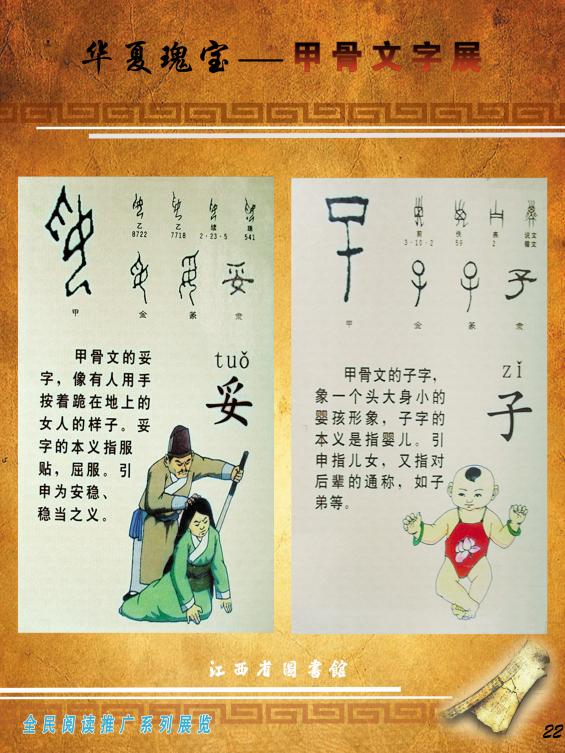 华夏瑰宝——甲骨文字展
乙 乙 续 珠
8722 7718 2·23·5 541
甲 金 篆 隶
tuǒ
妥
甲骨文的妥
字，像有人用手
按着跪在地上的
女人的样子。妥
字的本义指服
贴，屈服。引
申为安稳、
稳当之义。
前 佚 燕 说文
3·10·2 59 2 籀文
甲 金 篆 隶
zǐ
子
甲骨文的子字，
象一个头大身小的
婴孩形象，子字的
本义是指婴儿。引
申指儿女，又指对
后辈的通称，如子
弟等。
江西省图書館
全民阅读推广系列展览
22